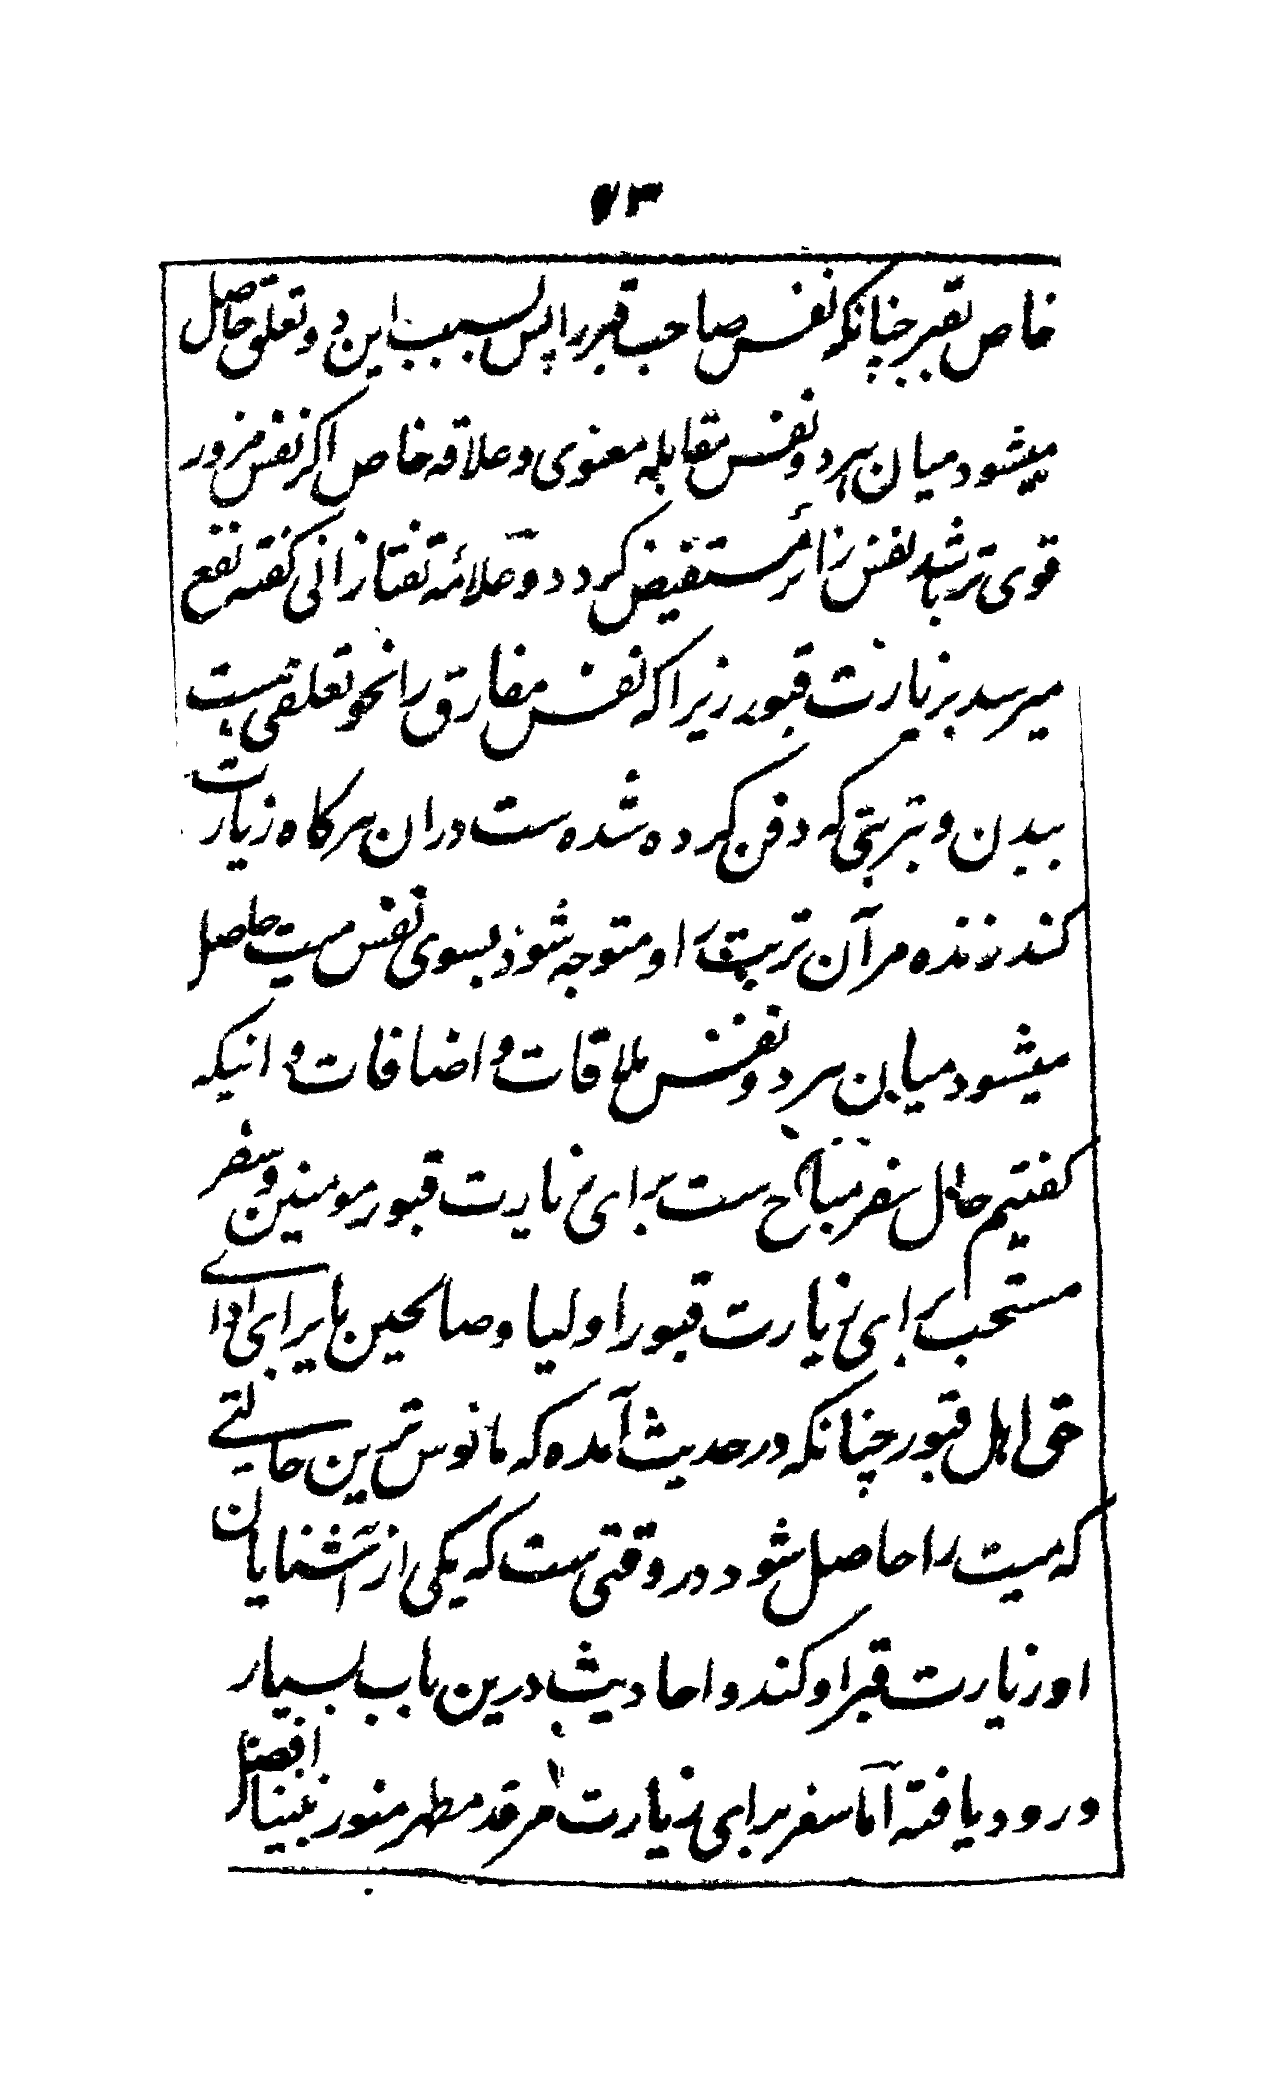 ۷۳
خاص بقبر چنانکه نفس صاحب قبر را پس بسبب این دو تعلق حاصل
میشود میان هر دو نفس مقابله معنوی و علاقه خاص اگر نفس مزور
قوی تر باشد نفس زائر مستفیض گردد و علامه تفتازانی گفته نفع
میرسد بزیارت قبور زیرا که نفس مفارق را نحو تعلقی هست
ببدن و بتربتی که دفن کرده شده ست دران هرگاه زیارت
کند زنده مر آن تربت را و متوجه شود بسوی نفس میت حاصل
میشود میان هر دو نفس ملاقات و اضافات و انیکه
گفتیم حال سفر مباح ست برای زیارت قبور مومنین و سفر
مستحب برای زیارت قبور اولیا و صالحین بایر ای ادای
حق اهل قبور چنانکه در حدیث آمده که مانوس ترین حالتے
که میت را حاصل شود در وقتی ست که یکی از آشنایان
او زیارت قبر او کند و احادیث درین باب بسیار
ورود یافته اما سفر برای زیارت مرقد مطهر منور نبینا افضل